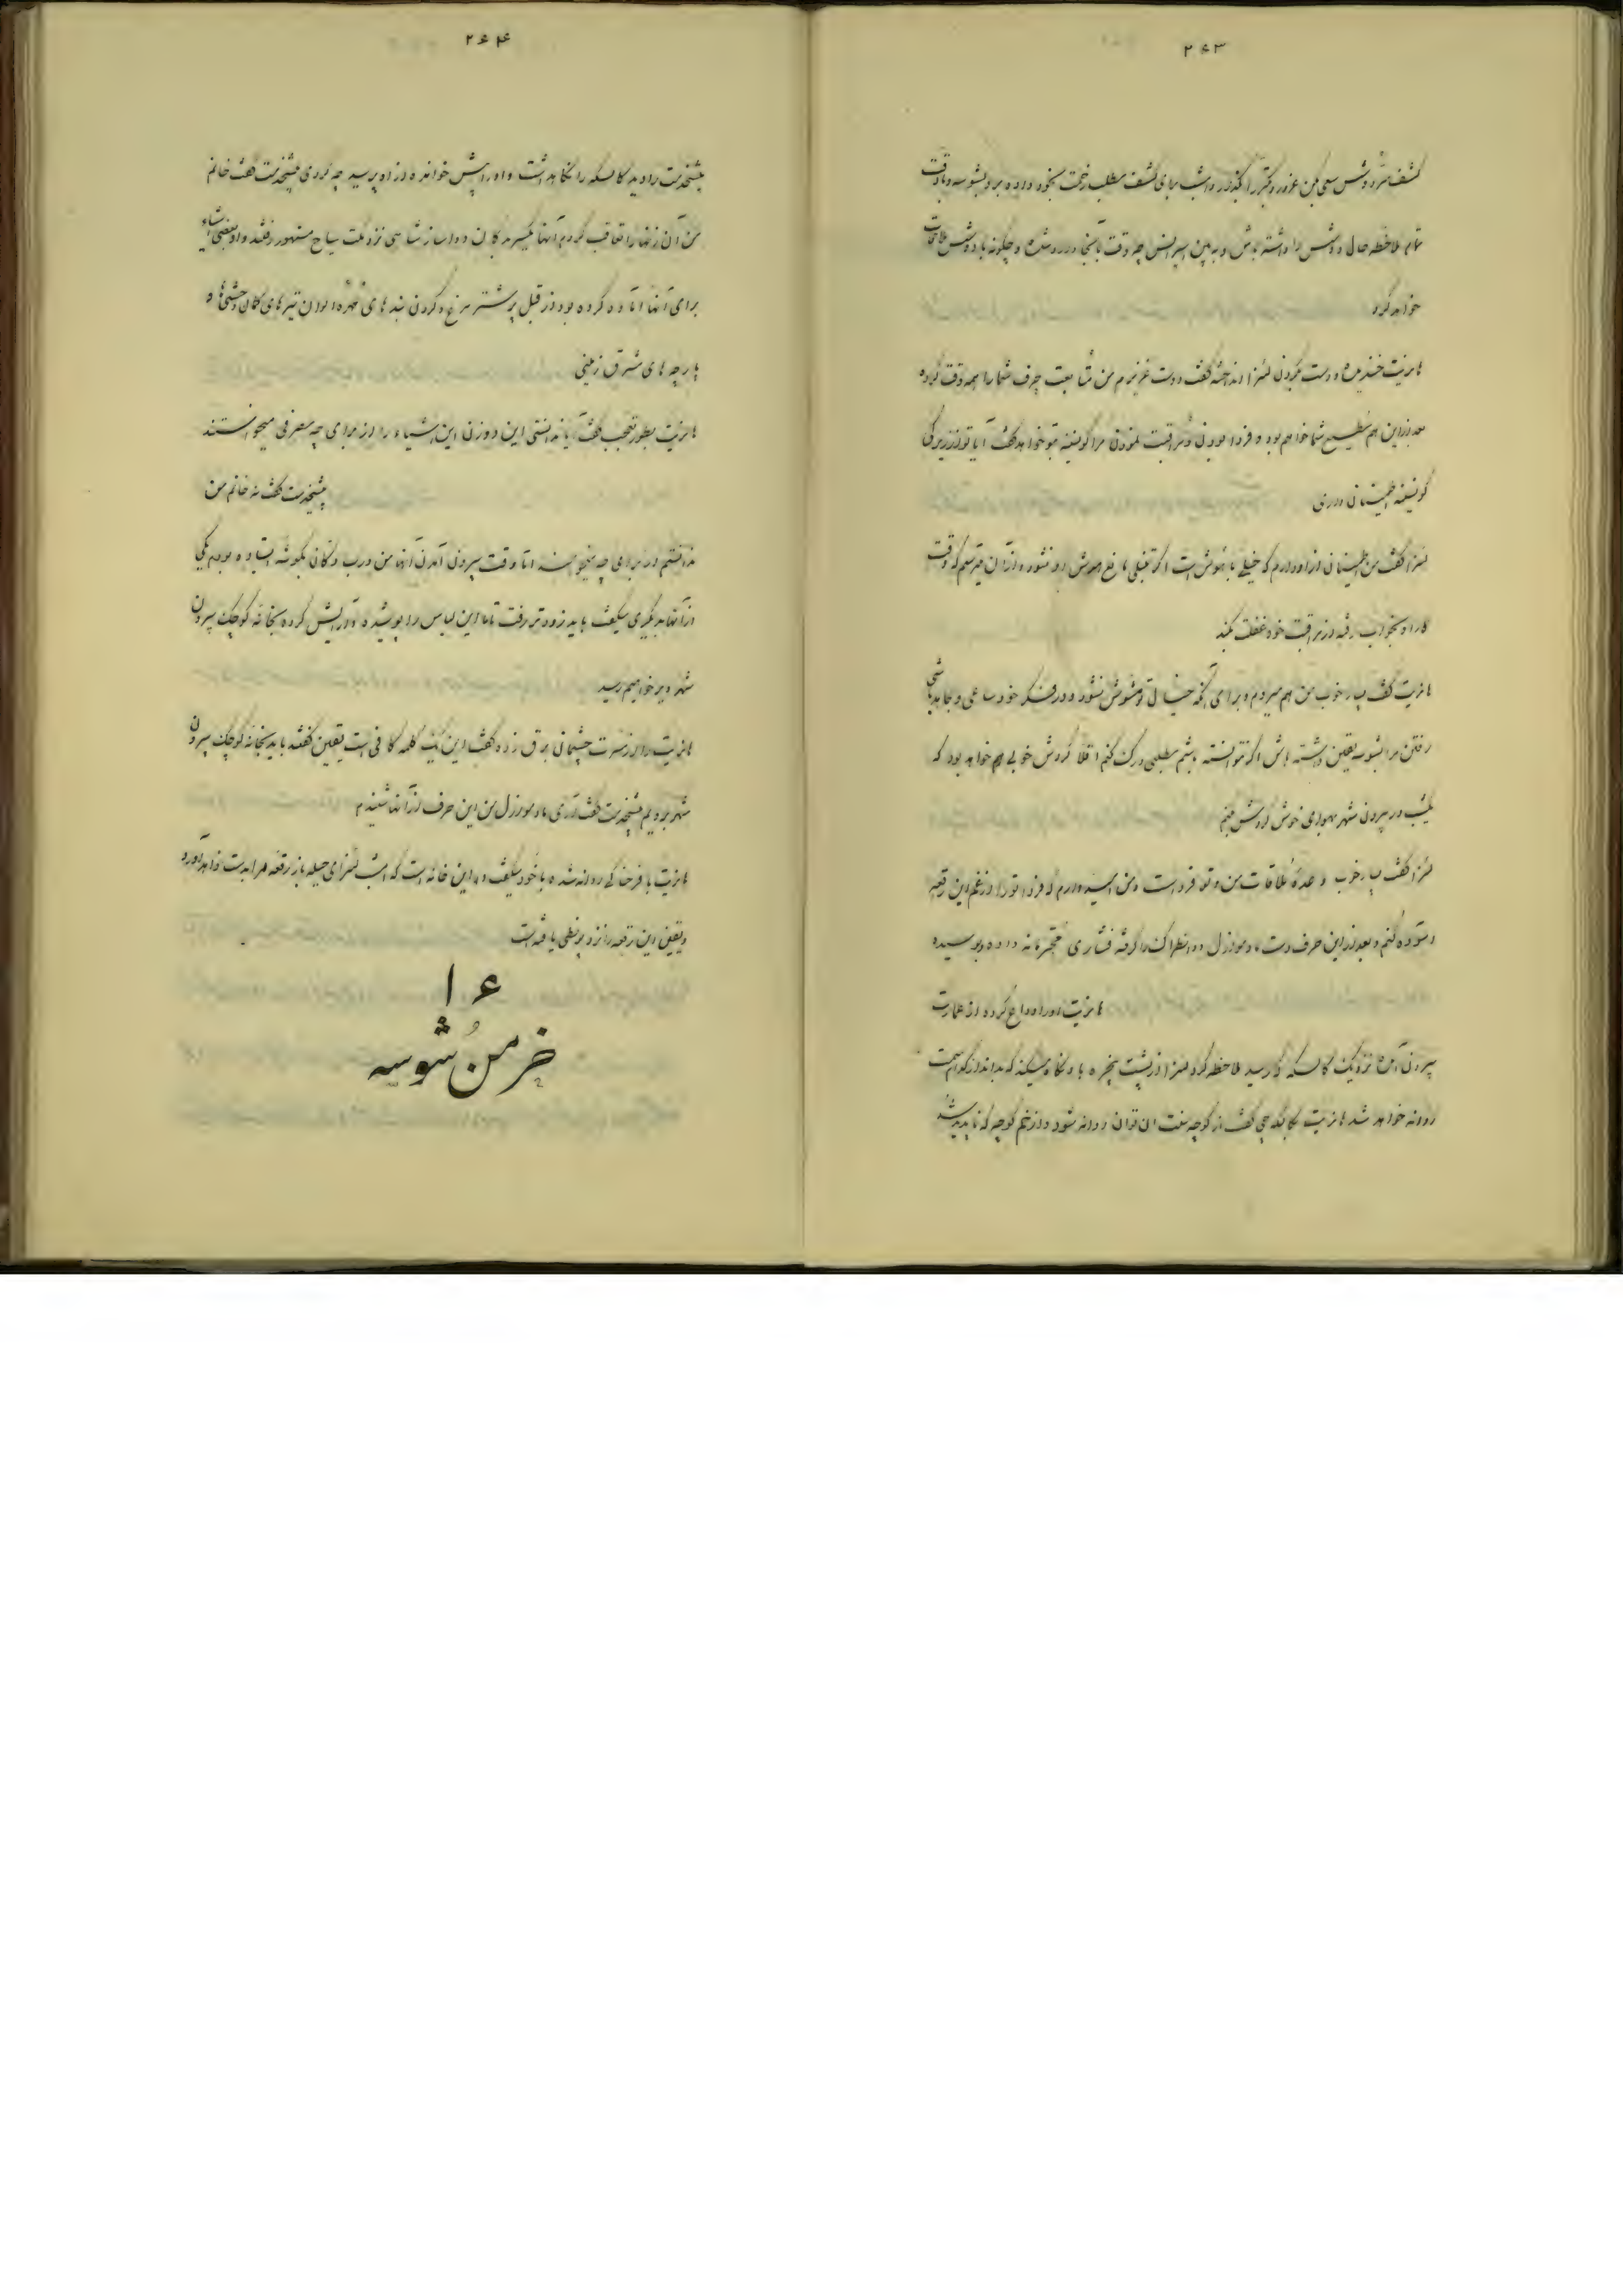 ۲۶۳
کشف سر دوشس سعی بکن غرور دکتر را بگذار و امشب برای کشف مطلب زحمت بخود داده برو بشوسه و با دقت
تمام ملاحظه حال دوشس را داشته باش و ببین پرنس چه وقت بآنجا وارد شده و چگونه با دوشس ملاقات
خواهد کرد
هانریت خندیده و دست بگردن لنرا انداخته گفت دوست عزیزم من متابعت حرف شما را همه وقت کرده
بعد از این هم مطیع شما خواهم بود و فردا بودن و مراقبت نمودن مرا بتو خواهد گفت آیا تو از زیرکی
اطمینان داری
لنرا گفت من اطمینانی از او دارم که خیلی با هوش است اگر تنبلی مانع هوش او نشود و از آن میترسم که وقت
کار او بخواب رفته و از مراقبت خود غفلت بکند
هانریت گفت بسیار خوب من هم میروم و برای آنکه خیال تو مشوش نشود و در فکر خود ساعی و مجاهد باشی
رفتن مرا بشوسه یقین داشته باش اگر نتوانسته باشم مطلبی درک کنم اقلا گردش خوبی هم خواهد بود که
یکشب در بیرون شهر بهوای خوش گردش میکنم
لنرا گفت بسیار خوب وعدهٔ ملاقات من و تو فرداست و من امیدوارم که فردا تو را از غم این رقعه
آسوده کنم و بعد از این حرف دست مادموازل را گرفته فشاری داده و بوسیده
هانریت او را وداع کرده از عمارت
بیرون آمده نزدیک کالسکه که رسید ملاحظه کرد لنرا از پشت پنجره باو نگاه میکند که بداند از کدام سمت
روانه خواهد شد هانریت بکالسکه چی گفت از کوچه سنت ان توان روانه شود و از خم کوچه که ناپدید شد
۲۶۴
پیشخدمت را دید کالسکه را نگاهداشت و او را پیش خوانده از او پرسید چه کردی پیشخدمت گفت خانم
من آن زنها را تعاقب کردم آنها یکسر بدکان نزد سیاح مشهور رفتند و او بعضی اشیاء
برای آنها آماده کرده بود از قبیل پر شترمرغ و گردن بند های مهره الوان تیرهای کمان وحشیها و
پارچه های مشرق زمینی
هانریت بطور تعجب گفت آیا ندانستی این دو زن این اشیاء را از برای چه مصرفی میخواستند
پیشخدمت گفت نه خانم من
ندانستم از برای چه میخواستند اما وقت بیرون آمدن آنها من درب دکان بگوشه ایستاده بودم یکی
از آنها بدیگری میگفت باید زودتر رفت تا ما این لباس را پوشیده و آرایش کرده بخانه کوچک بیرون
شهر دیر خواهیم رسید
هانریت را از مسرت چشمان برق زده گفت این یک کلمه کافی است یقین گفتند باید بخانه کوچک بیرون
شهر برویم پیشخدمت گفت آری مادموازل من این حرف از آنها شنیدم
هانریت با فرحناکی روانه شده با خود میگفت در این خانه است که امشب لنرای حیله باز رقعه مرا بدست خواهد آورد
و یقین این رقعه را نزد پرنس یافته است
۱۶
خرمن شوسه